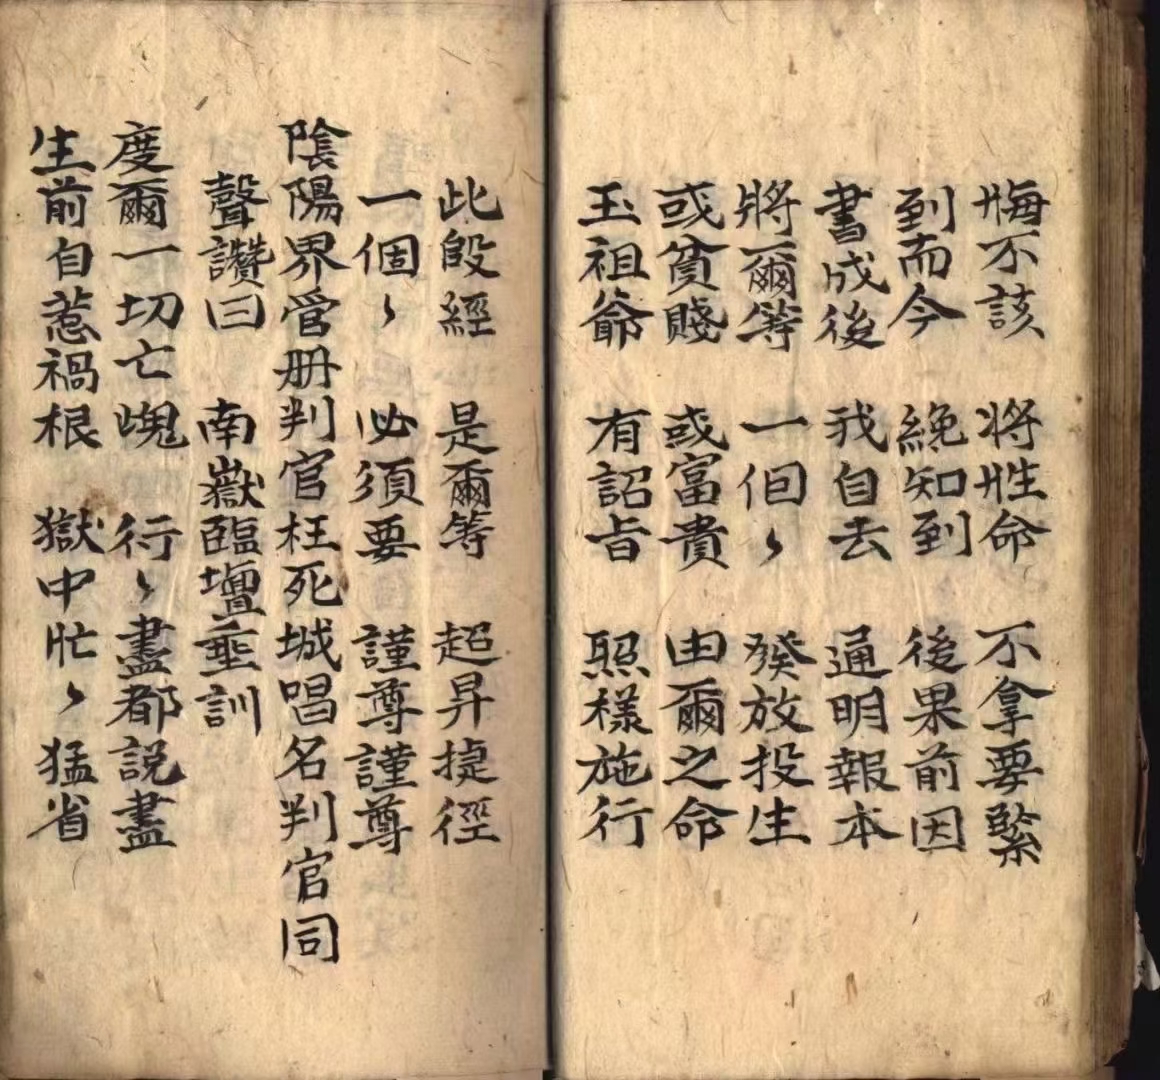 悔不該 將性命 不拿要緊
到而今 纔知到 後果前因
書成後 我自去 通明報本
將爾等 一個〻 發放投生
或貧賤 或富貴 由爾之命
玉祖爺 有詔旨 照樣施行
此段經 是爾等 超昇捷徑
一個〻 必須要 謹尊謹尊
陰陽界管册判官枉死城唱名判官同
聲讚曰 南嶽臨壇垂訓
度爾一切亡魂 行〻盡都說盡
生前自惹禍根 獄中忙〻猛省